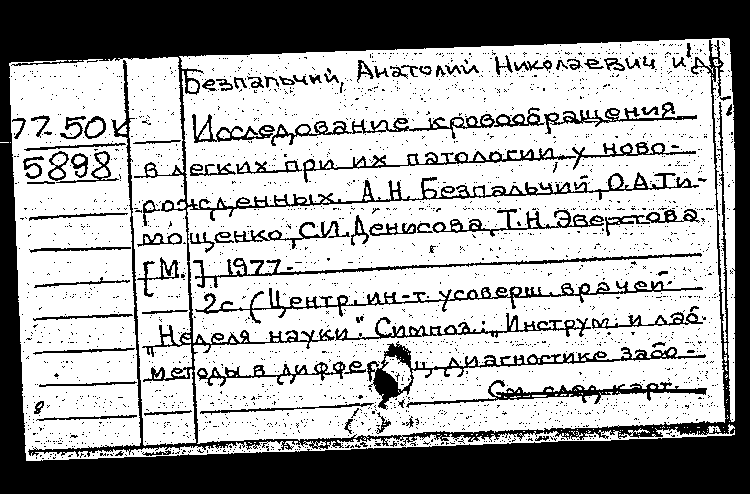 Безпальчий, Анатолий Николаевич и др
77-50к
5898
Исследование кровообращения
в легких при их патологии у ново-
рожденных. А.Н. Безпальчий, О.А. Ти-
мощенко, С.И. Денисова, Т.Н. Эверстова.
[М.], 1977.
2с. (Центр. ин-т. усоверш. врачей.
„Неделя науки". Симпоз.: „Инструм. и лаб.
методы в диагностике забо-
См. след. карт.
8